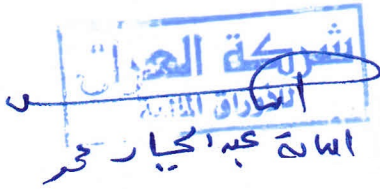 شركة العراق
للاوراق المالية
اسامة عبد الجبار